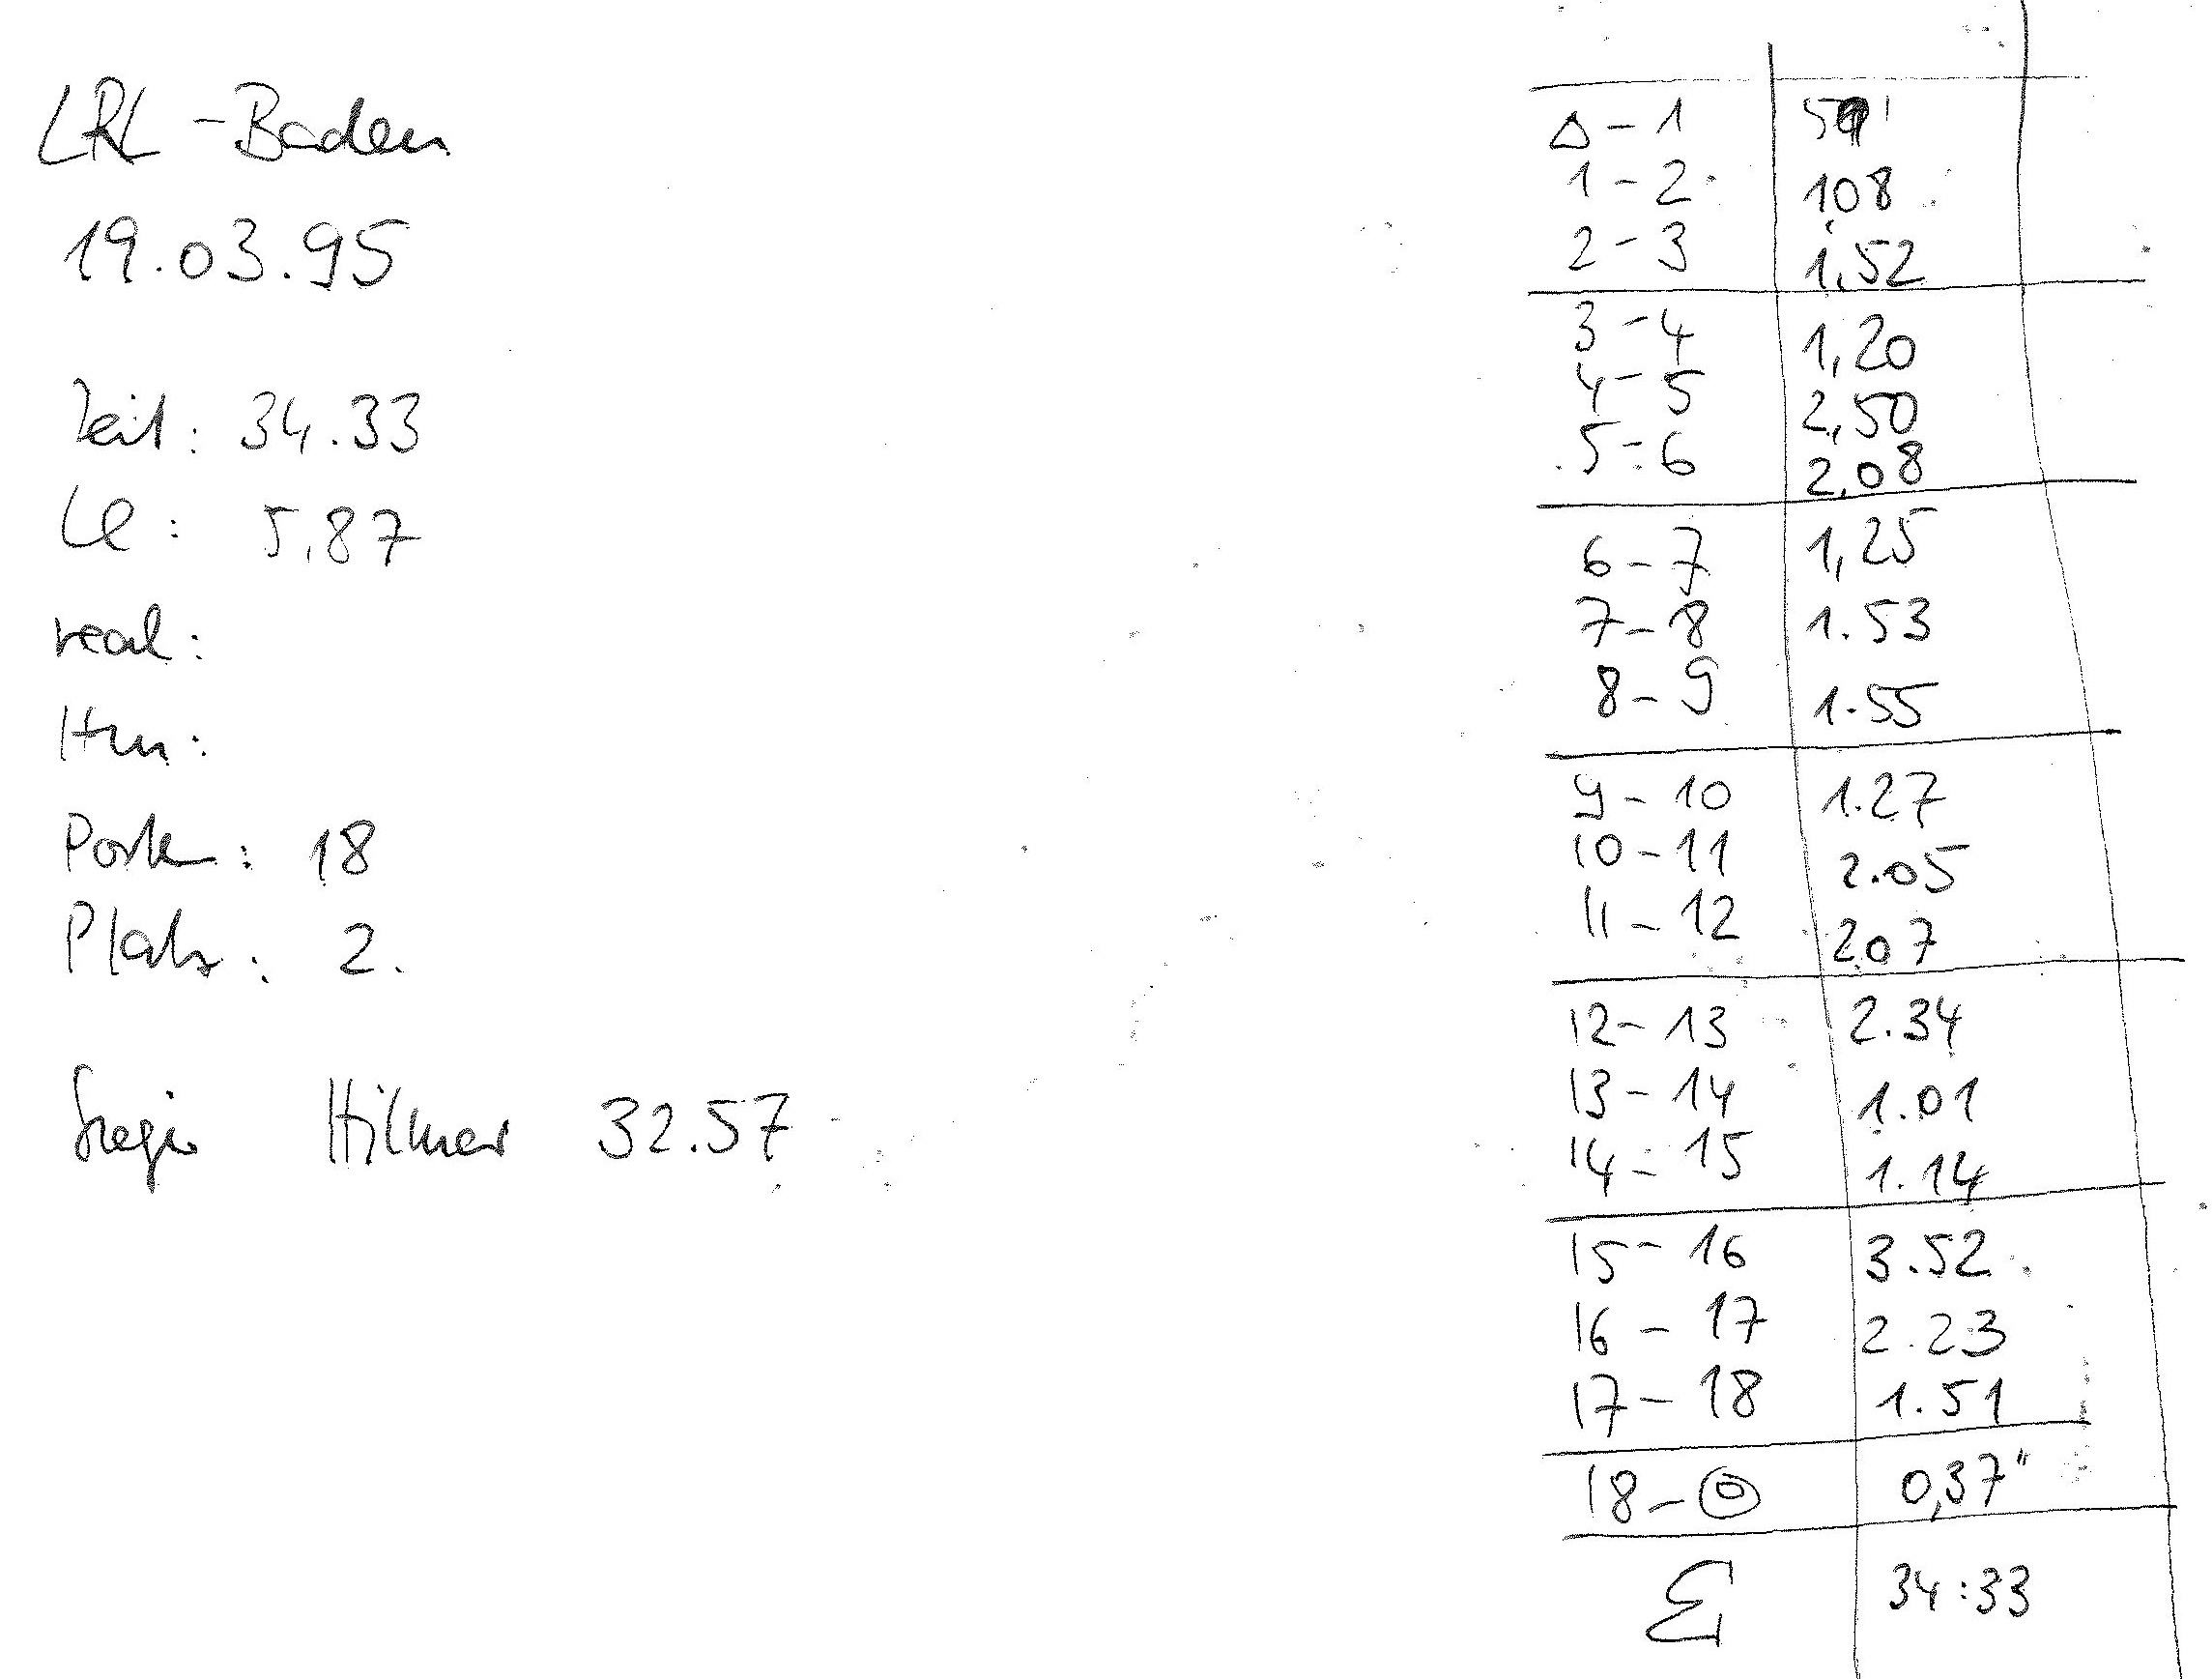 LRL-Baden
19.03.95
Zeit: 34.33
LE: 5,87
real:
Hm:
Posten: 18
Platz: 2.
Sieger Hilmar 32.57
Δ-1
1-2 108
2-3 1,52
3-4 1,20
4-5 2,50
5-6 2,08
6-7 1,25
7-8 1.53
8-9 1.55
9-10 1.27
10-11 2.05
11-12 2.07
12-13 2.34
13-14 1.01
14-15 1.14
15-16 3.52
16-17 2.23
17-18 1.51
18-◎ 0,37"
Σ 34:33